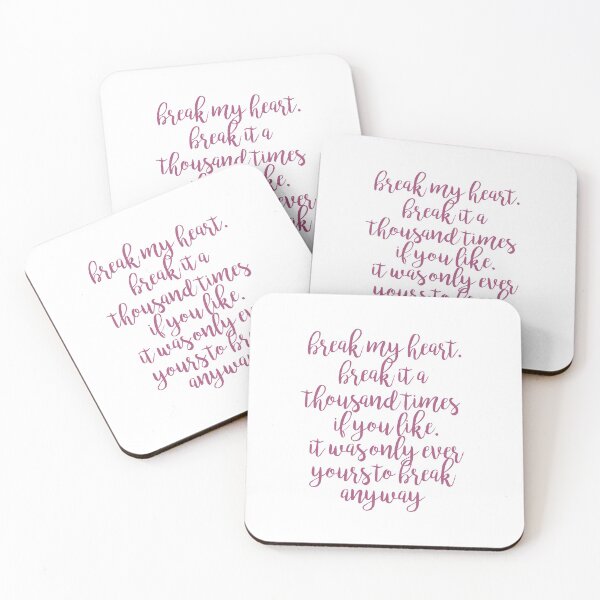 break my heart.
break it a
thousand times
ever
break my heart.
break it a
thousand times
if you like.
it was only ever
yours to
break my heart.
break it a
thousand times
if you like.
it was only
yours to
anyway
break my heart.
break it a
thousand times
if you like.
it was only ever
yours to break
anyway